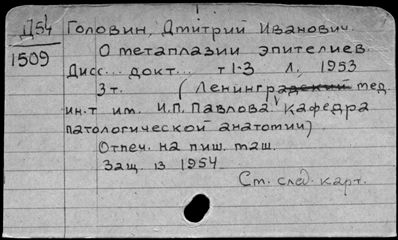 Д54 Головин, Дмитрий Иванович.
1509 О метаплазии эпителиев.
Дисс... докт... т 1-3 Л., 1953
3 т. (Ленинградский мед.
ин-т им. И.П. Павлова. Кафедра
патологической анатомии)
Отпеч. на пиш. маш.
Защ. в 1954
См. след. карт.